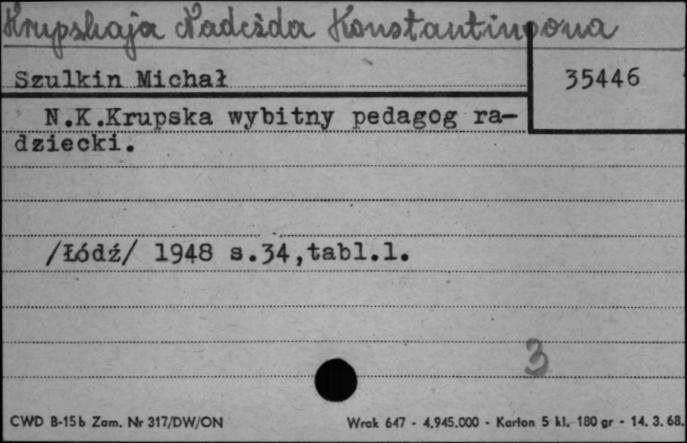 Krupskaja Nadežda Konstantinovna
Szulkin Michał
35446
N.K.Krupska wybitny pedagog ra-
dziecki.
/Łódź/ 1948 s.34,tabl.1.
3
CWD B-15b Zam. Nr 317/DW/ON
Wrak 647 - 4.945.000 - Karton 5 kl. 180 gr - 14. 3. 68.